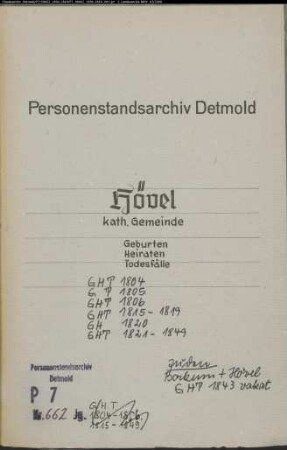 Personenstandsarchiv Detmold
Hövel
kath. Gemeinde
Geburten
Heiraten
Todesfälle
GHT 1804
G T 1805
GHT 1806
GHT 1815-1819
GH 1820
GHT 1821-1849
Juden
Bockum + Hövel
GHT 1843 vakat
Personenstandsarchiv
Detmold
P 7
Nr. 662 Jg.
G/H T
1804-1806
1815-1849